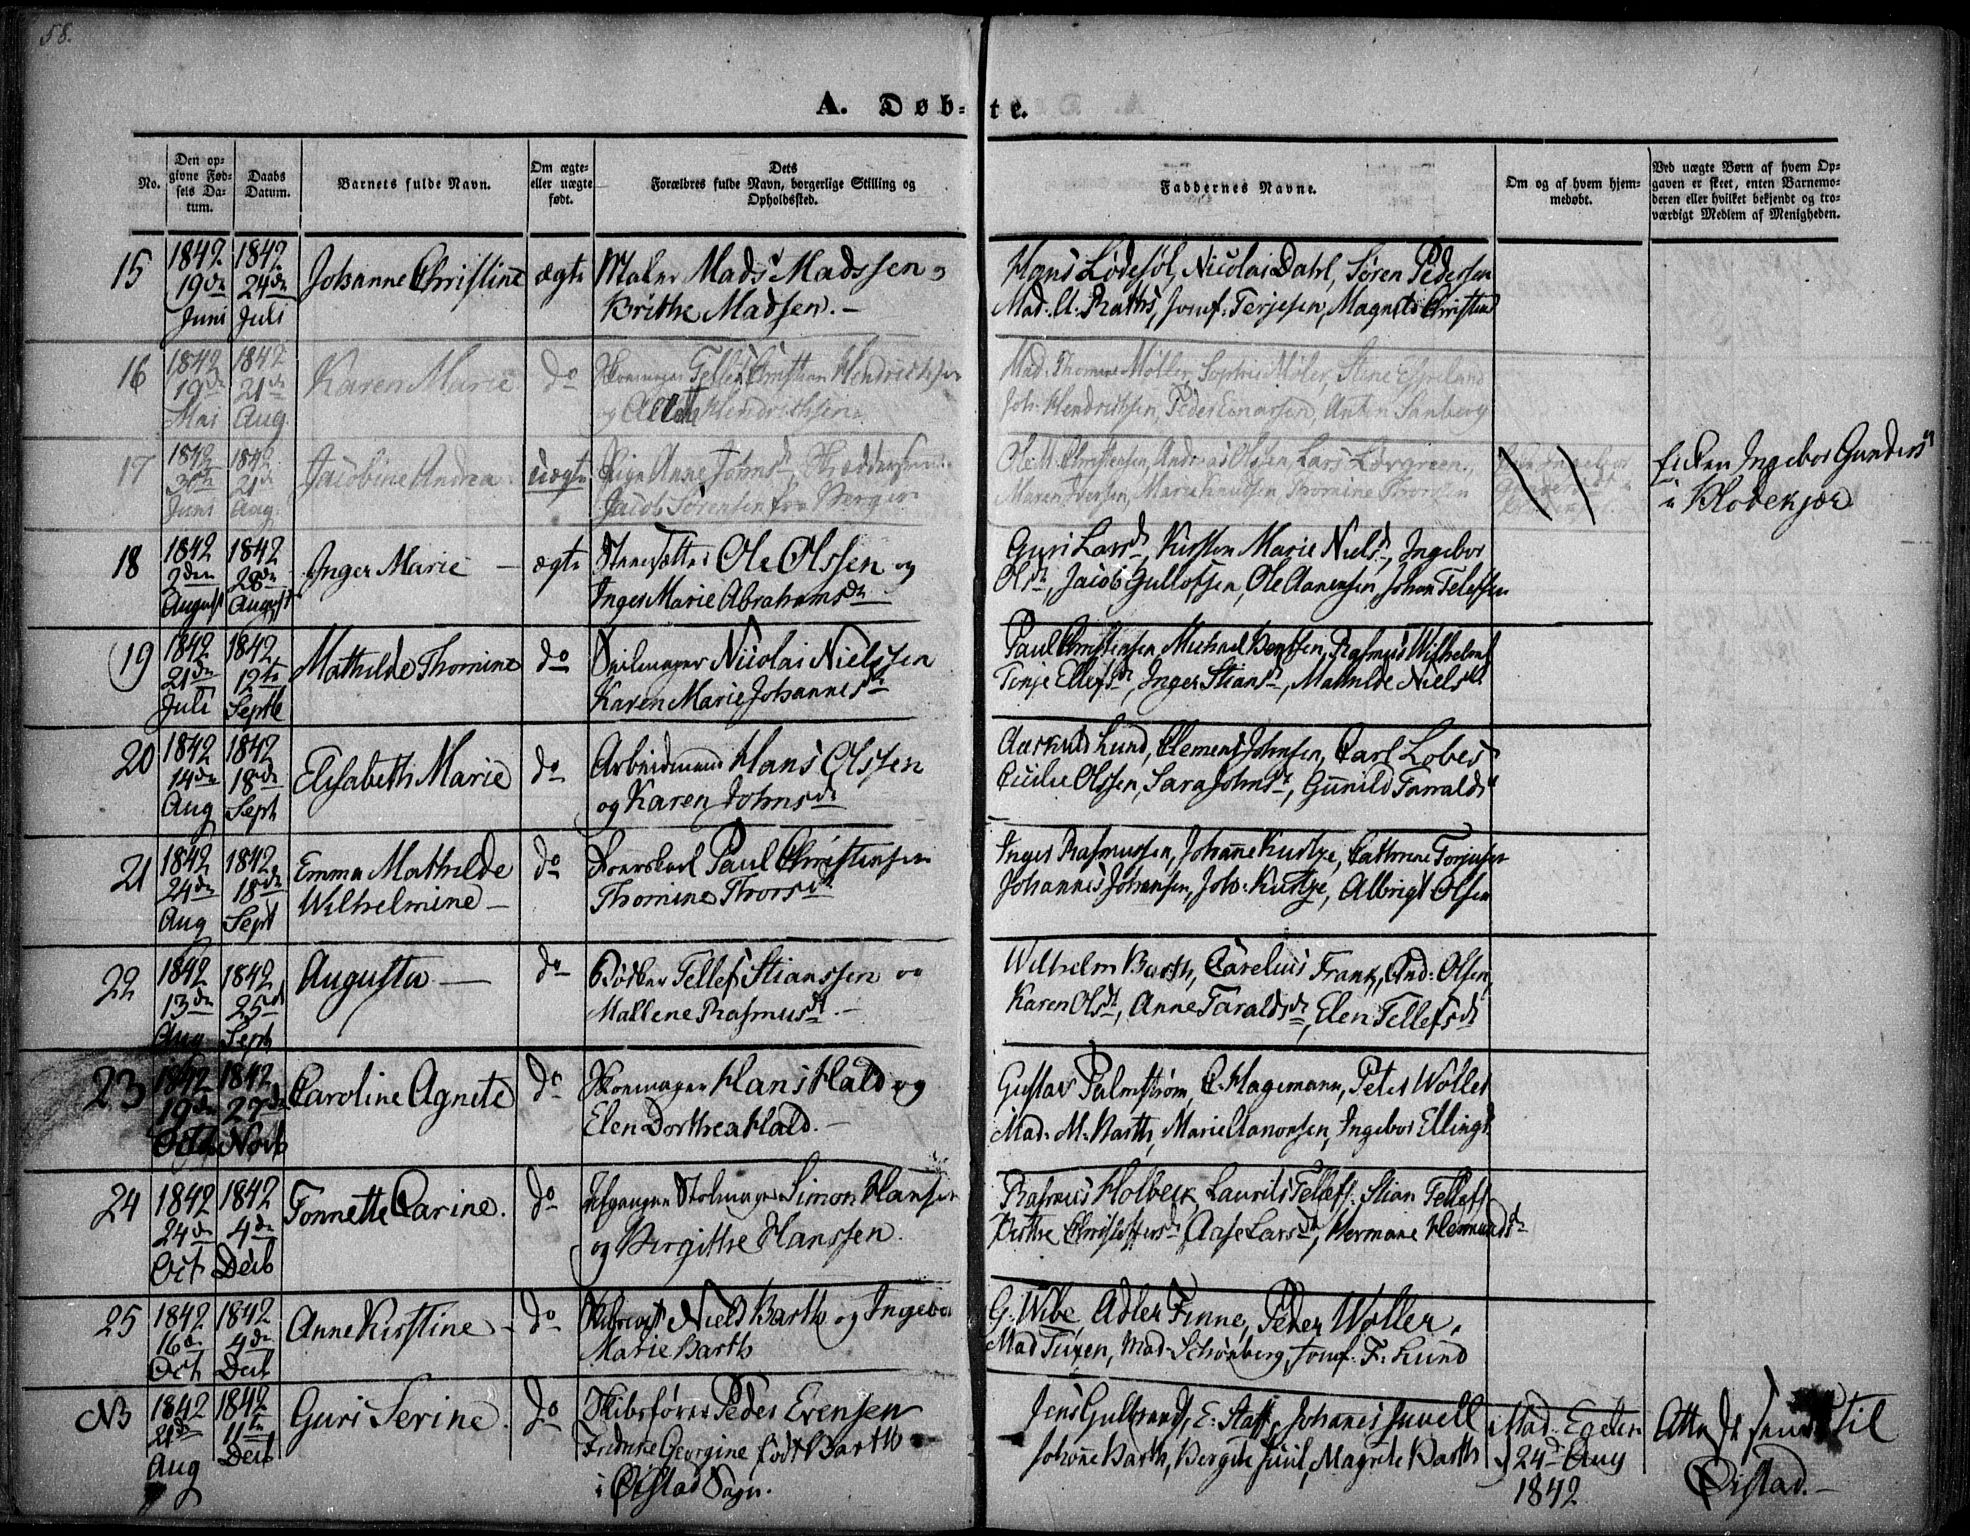 58.
A. Døb-te.
No.
Den op-
givne Fød-
sels Da-
tum.
Daabs
Datum.
Barnets fulde Navn.
Om ægte-
eller uægte
født.
Dets
Forælbres fulde Navn, borgerlige Stilling og
Opholdssted.
Faddernes Navne.
Om og af hvem hjem-
medøbt.
Ved uægte Børn af hvem Op-
gaven er skeet, enten Barnemo-
deren eller hvilket bekjendt og tro-
værdigt Medlem af Menigheden.
15
1842
19de
Juni
1842
24de
Juli
Johanne Christine
ægte
Maler Mads Madssen og
Brithe Madsen. -
Hans Lødesøl, Nicolai Dahl, Søren Pedersen
Mad. A. Raths, Jomf. Terjesen, Magnild Christens
16
1842
19de
Mai
1842
21de
Aug.
Karen Marie
do
Skomager Tellef Christian Hendrichsen
og Hendrichsen
Mad. Thomine Møller, Sophie Møler, Stine Espeland
Joh. Hendrichsen, Peder Einarsen, Anton Sanberg
17
1842
Juni
1842
21de
Aug.
Jacobine Andrea
uægte
Pige Anne Johnsd.
Jacob Sørensen fra Bergen
Ole M. Christensen, Andreas Olsen, Lars Løvgreen,
Maren Iversen, Marie Knudsen, Thomine Thorsen
Enken Ingebor Gundersd
i Klodekjær
18
1842
2den
August
1842
28de
August
Inger Marie -
ægte
Ole Olssen og
Inger Marie Abrahamsdtr
Guri Larsd, Kirsten Marie Nielsd, Ingebor
Olsdt, Jacob Gullofsen, Ole Aanensen, Johan Telefsen
19
1842
21de
Juli
1842
12te
Septb
Mathilde Thomine
do
Seilmager Nicolai Nielssen
Karen Marie Johannesdt
Paul Christensen, Michael Bentsen, Rasmus Wilhelms
Terje Ellefsdt, Inger Stiansd, Mathilde Nielsdt
20
1842
14de
Aug
1842
18de
Sept
Elisabeth Marie
do
Arbeidsmand Hans Olssen
og Karen Johnsdt
Aaskild Lund, Clemens Johnsen, Carl Lobes
Cicilie Olssen, Sara Johnsdt, Gunild Tarraldsd
21
1842
24de
Aug
1842
18de
Sept
Emma Mathilde
Wilhelmine -
do
Paul Christensen
Thomine Thorsdt
Inger Rasmussen, Johanne Kustze, Cathrine Torjusen
Johannes Johansen, Joh: Kustze, Albrigt Olsen
22
1842
13de
Aug
1842
25de
Sept
Augusta -
do
Bødker Tellef Stianssen og
Mallene Rasmusdt. -
Wilhelm Barth, Carelius Frank, And: Olsen,
Karen Olsdt, Anne Taraldsdt, Elen Tellefsdt
23
1842
19de
Octb
1842
27de
Novb
Caroline Agnete
do
Skomager Hans Hald og
Elen Dorthea Hald. -
Gustav Palmstrøm, C. Hagemann, Peter Woller
Mad. M. Barth, Marie Aanonsen, Ingebor Ellingsd
24
1842
24de
Oct
1842
4de
Decb
Tonnette Carine.
do
Afgangne Stolmager Simon Hansen
og Bergitthe Hanssen.
Rasmus Holbeck, Laurits Tellefs. Stian Tellefs
Birthe Christoffersdt Aase Larsdt, Hermane Hermundsdt
25
1842
16de
Oct
1842
4de
Decb
Anne Kirstine -
do
Niels Barth og Ingebor
Marie Barth
G. Wibe, Adler Finne, Peder Woller,
Mad Tuxen, Mad. Schönberg, Jomf. F. Lund
NB
1842
21de
Aug
1842
11te
Decb
Guri Serine.
do
Skibsfører Peder Evensen
Fredrike Georgine født Barth
i Øistad Sogn.
Jens Gulbrands, E. Staff, Johanes Juvell
Johanne Barth, Bergite Juul, Magrete Barth
Mad. Egder
24de Aug
1842
Attest sendt til
Øistad. -